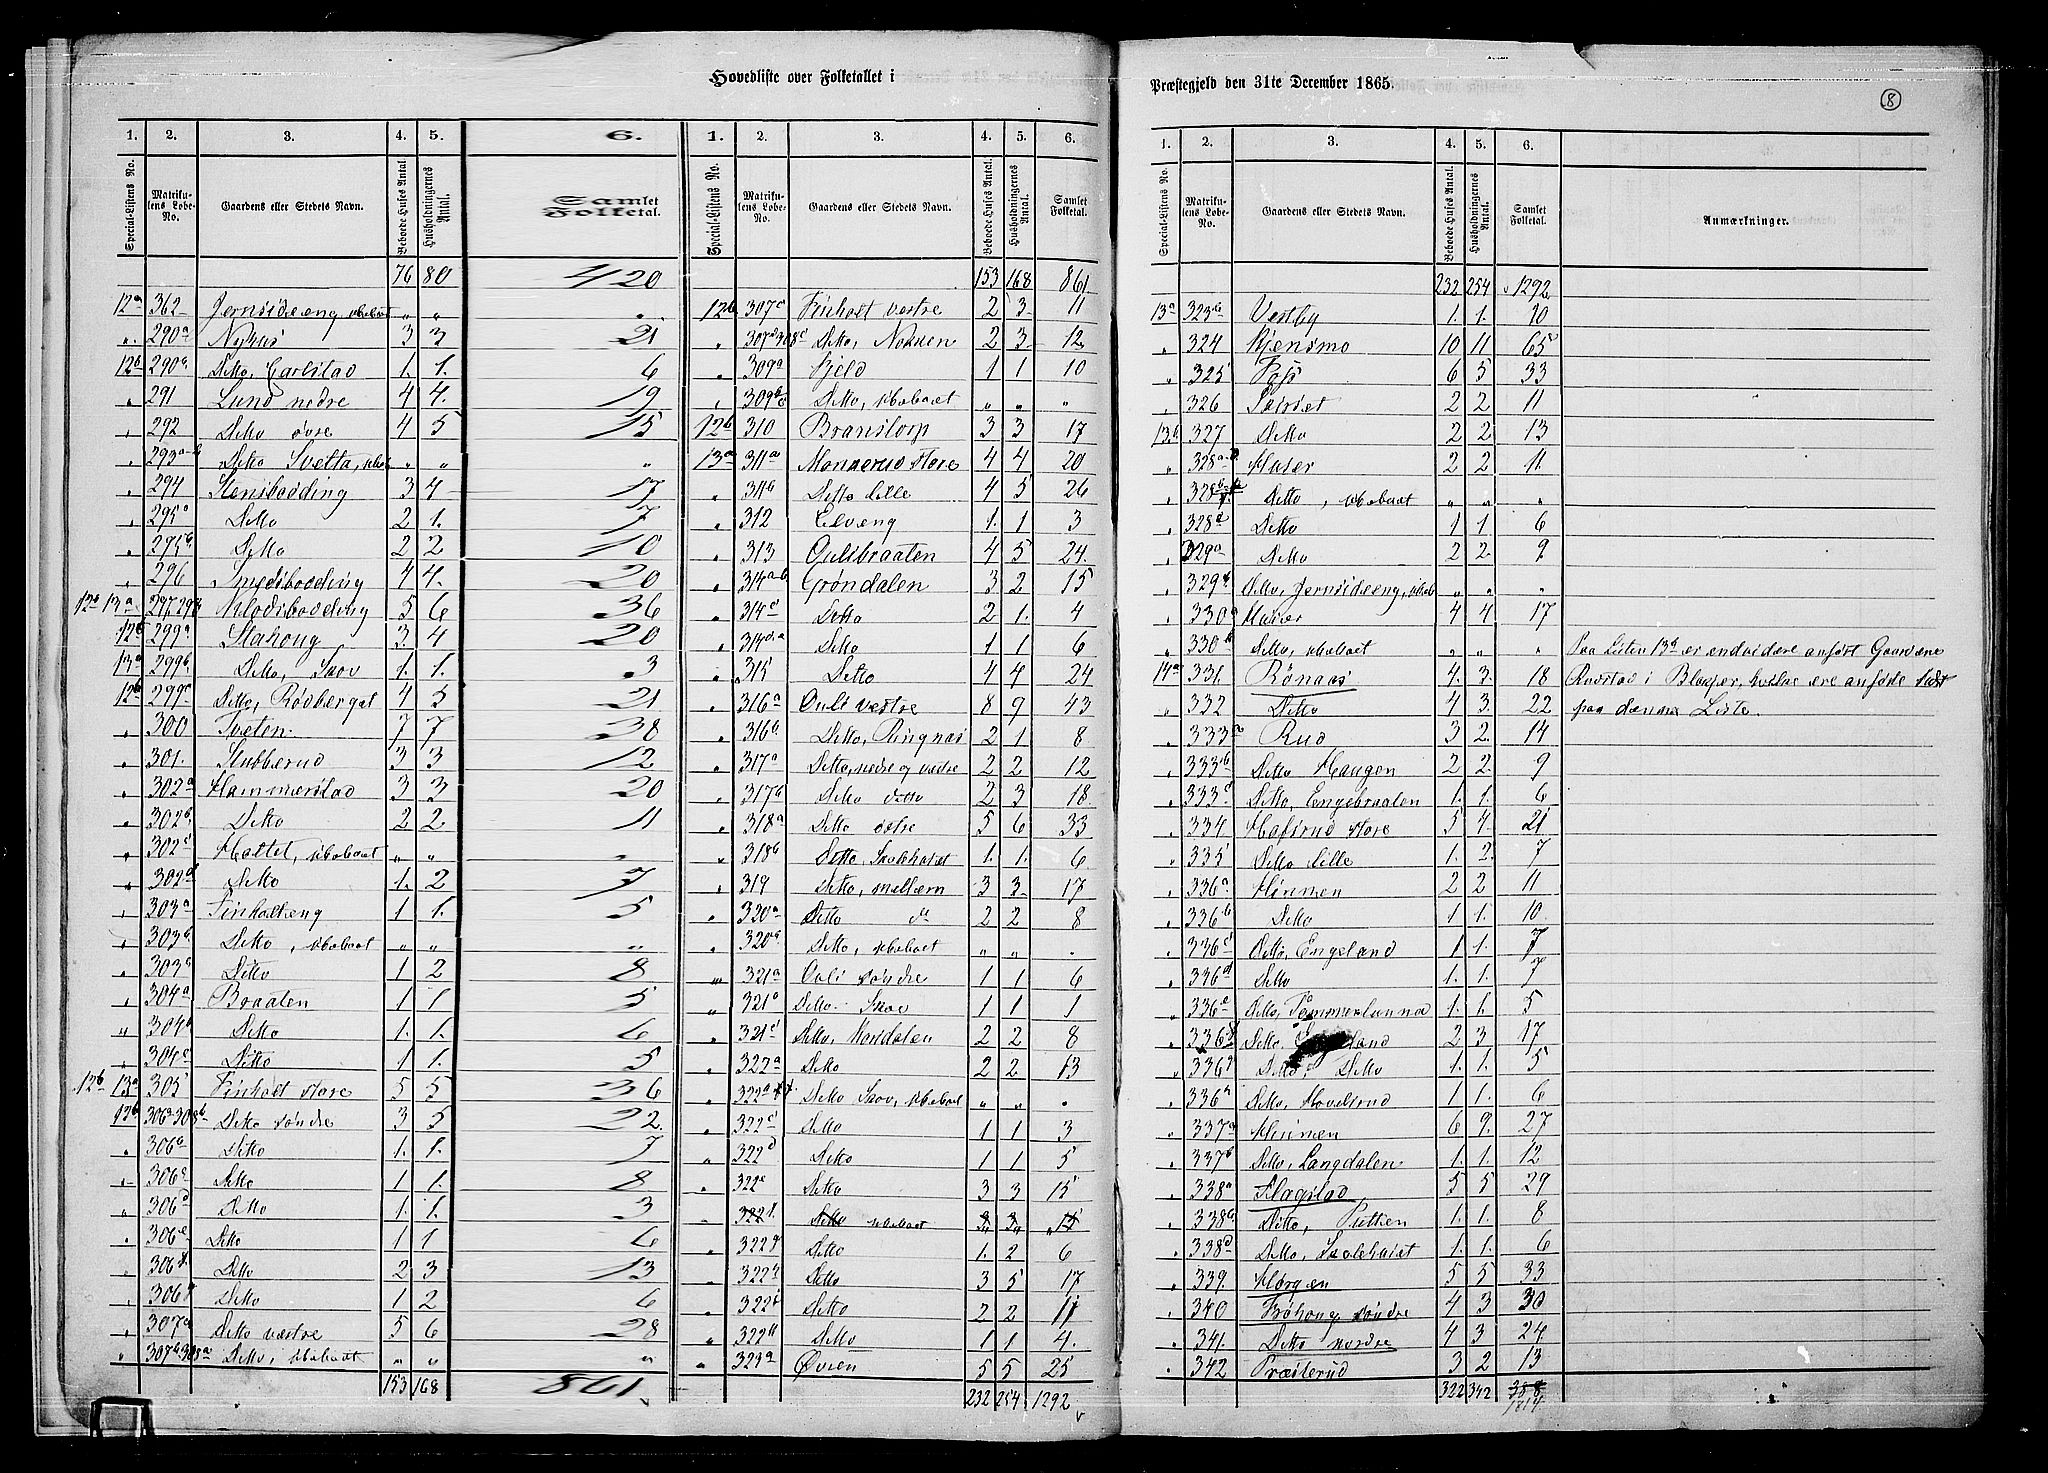 Hovedliste over Folketallet i
1. 2. 3. 4. 5. 6.
Special-Listens No. Matrikulens Løbe-No. Gaardens eller Stedets Navn. Beboede Huses Antal. Husholdningernes Antal. Samlet Folketal.
76 80 420
12a 362 Jernsideeng, ubeboet " " "
" 290a Nyhus 3 3 21
12b 290b Ditto, Carlstad 1. 1. 6
" 291 Lund nedre 4 4. 19
" 292 Ditto øvre 4 5 15
" 293a-b Ditto Svetta, " " "
" 294 Stensbødding 3 4 17
" 295a Ditto 2 1. 7
" 295b Ditto 2 2 10
" 296 Smedsbødding 4 4. 20
12b 13a 297, 298 5 6 36
12b 299a Stahoug 3. 4 20
13a 299b Ditto, Skov 1. 1. 3
12b 299c Ditto, Rødberget 4 5 21
" 300 Tveten 7 7 38
" 301. Stubberud 3 3 12
" 302a Hammerstad 3 3 20
" 302b Ditto 2 2 11
" 302c Holtet, ubeboet " " "
" 302d Ditto 1. 2 7
" 303a Finholteng 1 1. 5
" 303b Ditto, ubeboet " " "
" 303c Ditto 1 2 8
" 304a Braaten 1 1 5
" 304b Ditto 1. 1. 6
" 304c Ditto 1 1. 5
12b 13a 305 Finholt store 5 5 36
12b 306a-308b Ditto søndre 3 5 22.
" 306b Ditto 1. 1. 7
" 306c Ditto 1 1. 8
" 306d Ditto 1. 1. 3
" 306e Ditto 1 1 6
" 306f. Ditto 2 3 13
" 306g Ditto 1 2 6
" 307a Ditto vestre 5 6 28
" 307b-308a Ditto, ubeboet " " "
153 168 861
1. 2. 3. 4. 5. 6.
Special-Listens No. Matrikulens Løbe-No. Gaardens eller Stedets Navn. Beboede Huses Antal. Husholdningernes Antal. Samlet Folketal.
153 168 861
12b 307c Finholt vestre 2 3 11
" 307d-308c Ditto, Nokken 2 3 12
" 309a Fjeld 1 1 10
" 309b-c Ditto, ubeboet " " "
12b 310 Branstorp 3 3 17
13a 311a Mønnerud store 4 4 20
" 311b Ditto lille 4 5 26
" 312 Elveng 1. 1 3
" 313 Gulsbraaten 4 5 24.
" 314a-b Grøndalen 3 2 15
" 314c Ditto 2 1. 4
" 314d Ditto 1 1 6
" 315 Ditto 4 4 24
" 316a Ouli vestre 8 9 43
" 316b Ditto, Ringnæs 2 1 8
" 317a Ditto, nedre og vestre 2 2 12
" 317b Ditto ditto 2 3 18
" 318a Ditto østre 5 6 33
" 318b Ditto, Skolehuset 1. 1. 6
" 319 Ditto, mellem 3 3 17
" 320a Ditto do 2 2 8
" 320b Ditto, ubeboet " " "
" 321a Ouli søndre 1 1 6
" 321b Ditto Skov 1 1 1
" 321c Ditto, Nordalen 2 2 8
" 322a Ditto 2 2 13
" 322b Ditto Skov, ubeboet " " "
" 322c Ditto 1 1 3
" 322d Ditto 1 1 5
322e Ditto 3 3 15
" 322f. Ditto ubeboet " " "
" 322g Ditto 1. 2 6
" 322h Ditto 3 5 17
" 322i Ditto 2 2 11
" 322k Ditto 1 1 4.
" 323a Øvien 5 5 25
232 254 1292
Præstegjeld den 31te December 1865.
8
1. 2. 3. 4. 5. 6.
Special-Listens No. Matrikulens Løbe-No. Gaardens eller Stedets Navn. Beboede Huses Antal. Husholdningernes Antal. Samlet Folketal. Anmærkninger.
232 254 1292
13a 323b Vestby 1. 1. 10
" 324 Kjensmo 10 11 65
" 325 6 5 33
" 326 2 2 11
13b 327 Ditto 2 2 13
" 328a-b Huser 2 2 11
" 328 Ditto, ubeboet " " "
" 328 Ditto 1 1 6
" 329a Ditto 2 2 9
" 329b Ditto, Jernsideeng, " " "
" 330a Huser 4 4 17
" 330b Ditto, ubeboet " " " Paa Listen 13b er endvidere anført Gaardene
14a 331. Rønaas 4. 3. 18 Rustad i Blakjer, hvilke ere anførte sidst
" 332 Ditto 4 3 22 paa denne Liste.
" 333a Rud 3 2. 14
" 333b Ditto Haugen 2 2. 9
" 333c Ditto, Engebraaten 1. 1. 6
" 334 Hafsrud store 5 4. 21
" 335 Ditto lille 1. 2. 7
" 336a Hinmen 2 2 11
" 336b Ditto 1 1. 10
" 336c Ditto, Engeland 1 1. 7
" 336d Ditto 1. 1. 7
" 336e Ditto, Tømmerlunna 1. 1. 5
" 336f Ditto, 2 3 17
" 336g Ditto, Ditto 1. 1. 5
" 336h Ditto, Hovelsrud 1 1. 6
" 337a Hinmen 6 9. 27
" 337b Ditto, Langdalen 1. 1. 12
" 338a Hagstad 5 5 29
" 338b Ditto, Putten 1. 1. 8
" 338d Ditto, Skolehuset 1. 1. 6
" 339. Horgen 5 5 33
" 340 Frøhoug søndre 4 3 30
" 341. Ditto nordre 4 3 24.
" 342 Præsterud 3 2 13
322 342 1814